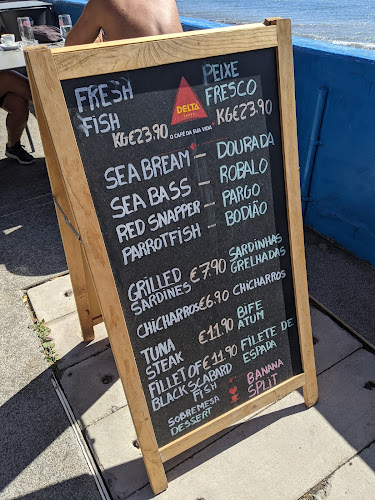 FRESH FISH KG€23.90
DELTA
CAFÉS
O CAFÉ DA SUA VIDA
PEIXE FRESCO KG€23.90
SEA BREAM - DOURADA
SEA BASS - ROBALO
RED SNAPPER - PARGO
PARROTFISH - BODIÃO
GRILLED SARDINES €7.90 SARDINHAS GRELHADAS
CHICHARROS €6.90 CHICHARROS
TUNA STEAK €11.90 BIFE ATUM
FILLET OF BLACK SCABARD FISH €11.90 FILETE DE ESPADA
SOBREMESA DESSERT BANANA SPLIT